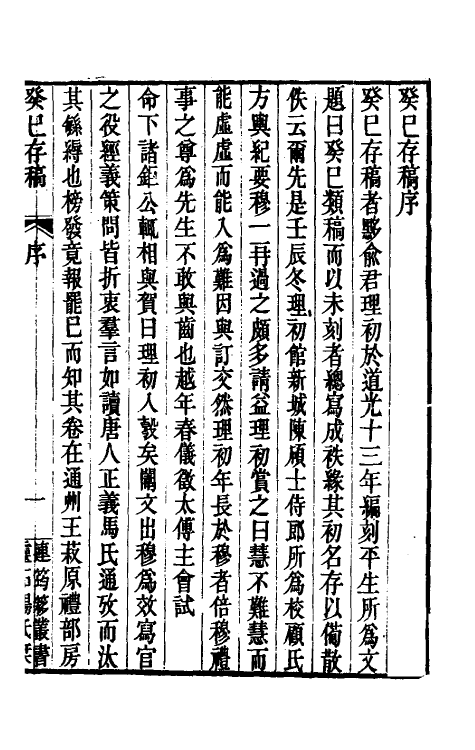 癸巳存稿序
癸巳存稿者黟俞君理初於道光十三年編刻平生所爲文
題曰癸巳類稿而以未刻者總寫成秩緣其初名存以備散
佚云爾先是壬辰冬理初館新城陳碩士侍郎所爲校顧氏
方輿紀要穆一再過之頗多請益理初賞之曰慧不難慧而
能虛虛而能入爲難因與訂交然理初年長於穆者倍穆禮
事之尊爲先生不敢與齒也越年春儀徵太傅主會試
命下諸鉅公輒相與賀曰理初入彀矣闈文出穆爲效寫官
之役經義策問皆折衷羣言如讀唐人正義馬氏通攷而汰
其繇縟也榜發竟報罷已而知其卷在通州王菽原禮部房
癸巳存稿
序
一
連筠簃叢書
靈石楊氏栞